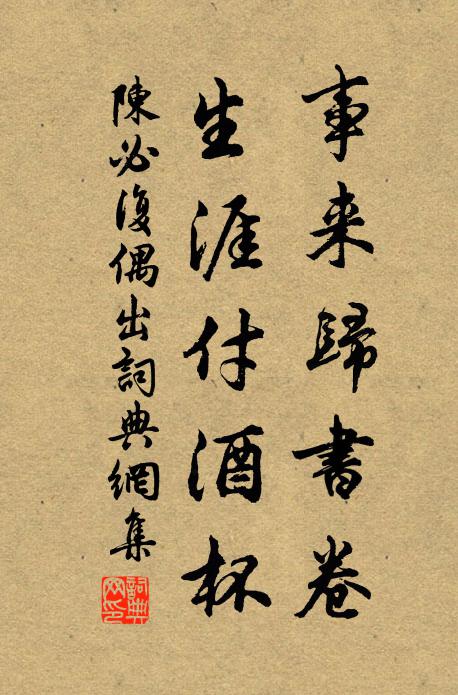 事来歸書卷
生涯付酒杯
陳必復偶出詞典網集
詞典網印